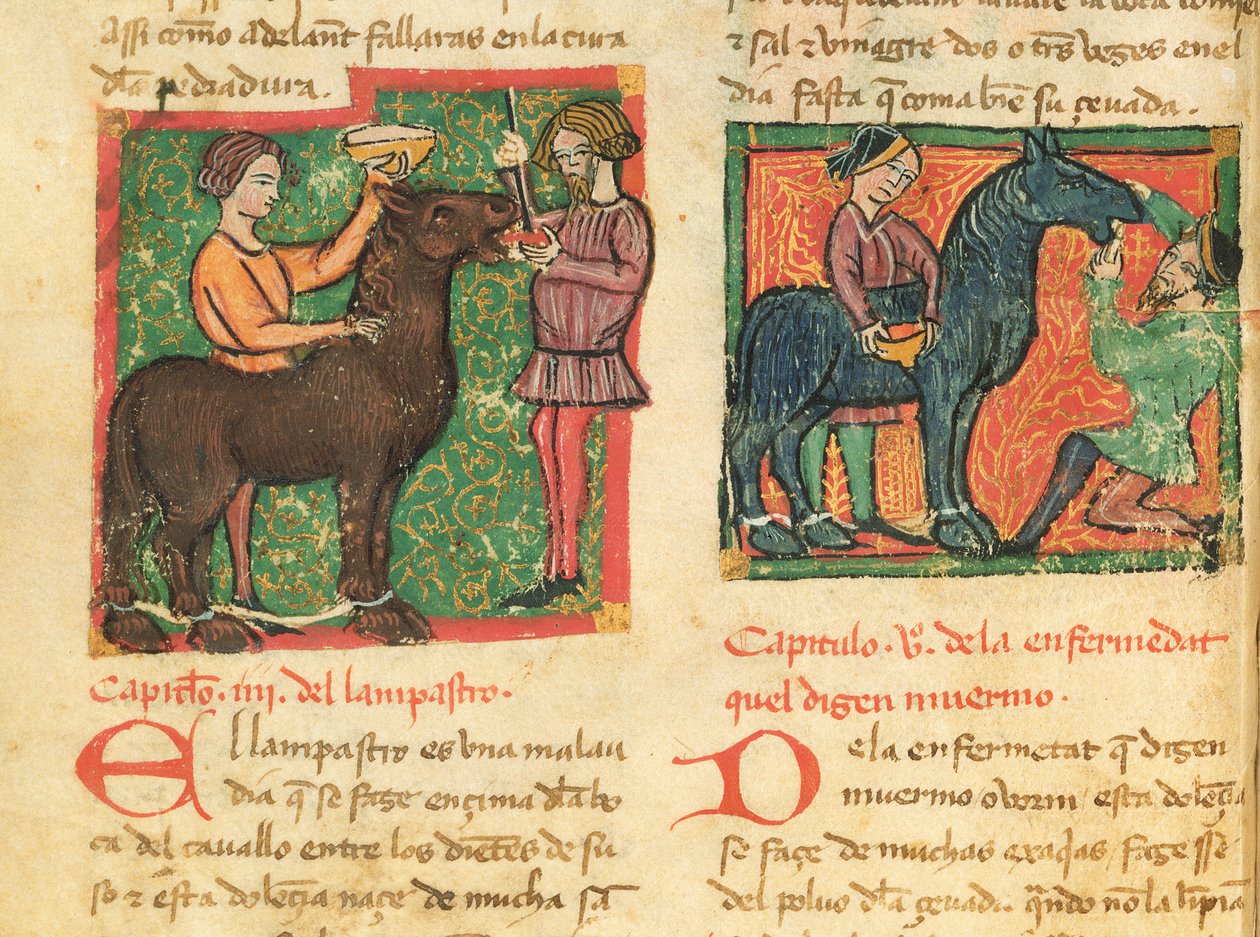 assi com̃o adelañt fallaras en la cura
dl̃a pedradura.
Capitl̃o .iiij. del lampastro.
El lampastro es vna malau
dia q̃ se faze ençima dl̃a bo
ca del cauallo entre los dient̃es de su
so ⁊ esta dolẽçia naçe de mucha sã
⁊ sal ⁊ vinagre dos o tr̃s vezes en el
dia fasta q̃ coma biẽ su çeuada.
Capitulo .vº. dela enfermedat
quel dizen muermo.
Dela enfermetat q̃ dizen
muermo o vorm esta dolẽçia
se façe de muchas exaq̃as faze sse
del poluo dl̃a çeuada. qñdo nõ la lĩpiã